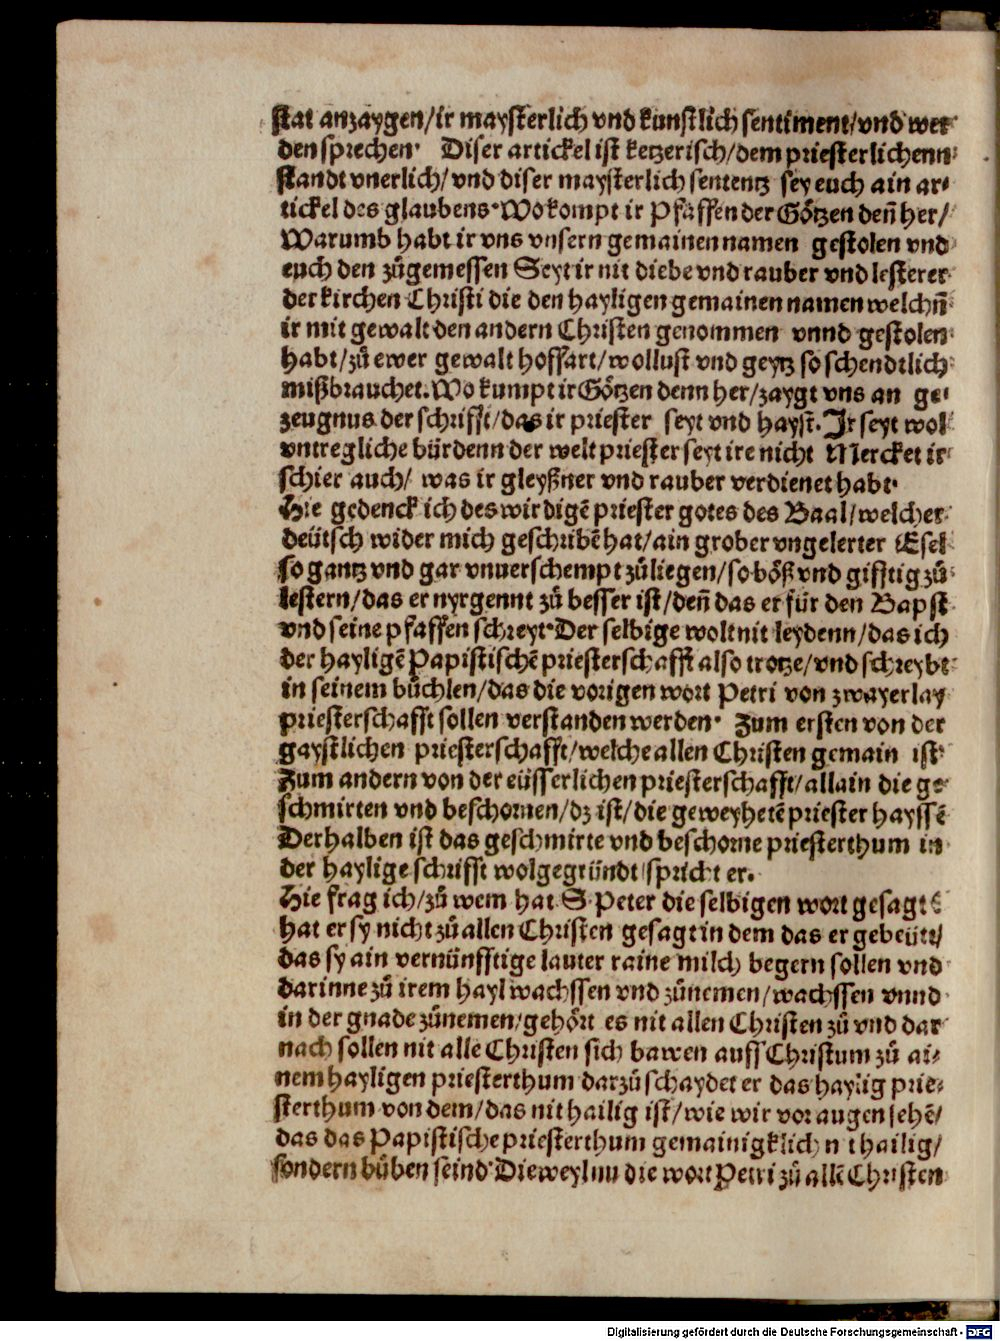 stat anzaygen/ir maysterlich vnd kunstlich sentiment/vnd wer
den sprechen· Diser artickel ist ketzerisch/dem priesterlichenn
standt vnerlich/vnd diser maysterlich sententz sey euch ain ar⸗
tickel des glaubens·Wo kompt ir Pfaffen der Gôtzen deñ her/
Warumb habt ir vns vnsern gemainen namen gestolen vnd
euch den zůgemessen Seyt ir nit diebe vnd rauber vnd lesterer
der kirchen Christi die den hayligen gemainen namen welchñ
ir mit gewalt den andern Christen genommen vnnd gestolen
habt/zů ewer gewalt hoffart/wollust vnd geytz so schendtlich
mißbrauchet.Wo kumpt ir Gôtzen denn her/zaygt vns an ge⸗
zeugnus der schrifft/das ir priester seyt vnd hayst̃.Jr seyt wol
vntregliche bürdenn der welt priester seyt ire nicht Mercket ir
schier auch/ was ir gleyßner vnd rauber verdienet habt·
Hie gedenck ich des wirdigẽ priester gotes des Baal/welcher
deütsch wider mich geschribẽ hat/ain grober vngelerter Esel
so gantz vnd gar vnuerschempt zůliegen/so bôß vnd gifftig zů
lestern/das er nyrgennt zů besser ist/deñ das er für den Bapst
vnd seine pfaffen schreyt·Der selbige wolt nit leydenn/das ich
der hayligẽ Papistischẽ priesterschafft also trotze/vnd schreybt
in seinem bůchlen/das die vorigen wort Petri von zwayerlay
priesterschafft sollen verstanden werden· Zum ersten von der
gaystlichen priesterschafft/welche allen Christen gemain ist
Zum andern von der eüsserlichen priesterschafft/allain die ge
schmirten vnd beschornen/dz ist/die geweyhetẽ priester hayssẽ
Derhalben ist das geschmirte vnd beschorne priesterthum in
der haylige schrifft wolgegründt spricht er.
Hie frag ich/zů wem hat S·Peter die selbigen wort gesagt
hat er sy nicht zů allen Christen gesagt in dem das er gebeütt/
das sy ain vernünfftige lauter raine milch begern sollen vnd
darinne zů irem hayl wachssen vnd zůnemen/wachssen vnnd
in der gnade zůnemen/gehôrt es nit allen Christen zů vnd dar
nach sollen nit alle Christen sich bawen auff Christum zů ai⸗
nem hayligen priesterthum darzů schaydet er das haylig prie⸗
sterthum von dem/das nit hailig ist/wie wir vor augen sehẽ/
das das Papistische priesterthum gemainigklich n t hailig/
sondern bůben seind·Die weyl nu die wort Petri zů allẽ Christen
Digitalisierung gefördert durch die Deutsche Forschungsgemeinschaft - DFG